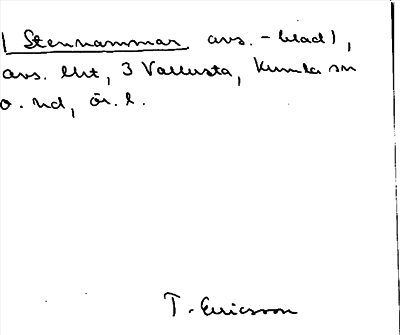 ( Stennammar avs. -blad),
avs. lht, 3 Vallersta, Kumla sn
o. hd, ör. l.
T. Ericsson